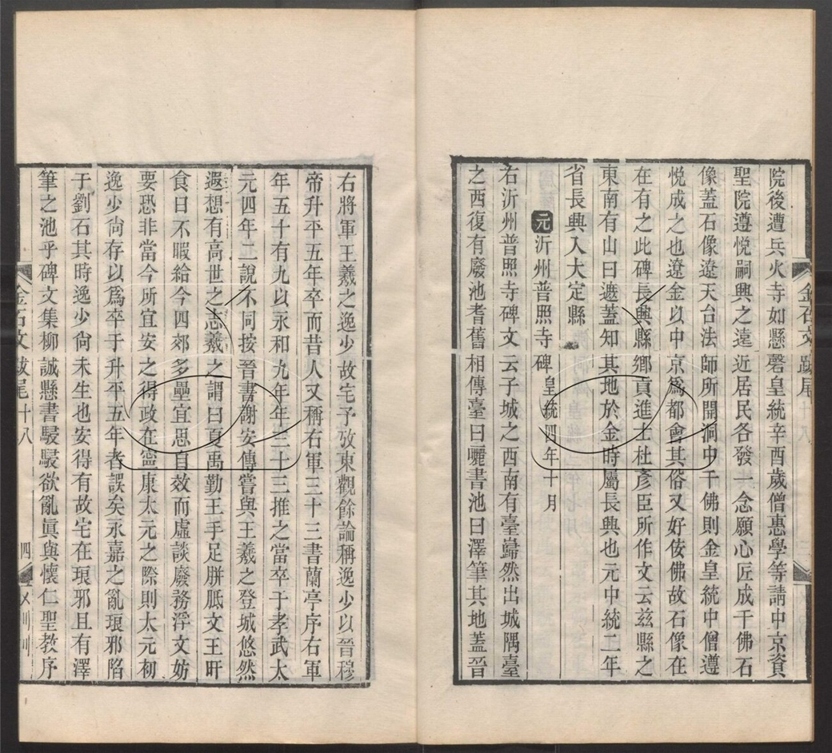 院後遭兵火寺如懸磬皇統辛酉歲僧惠學等請中京資
聖院遵悅嗣興之遠近居民各發一念願心匠成千佛石
像蓋石像遼天台法師所開洞中千佛則金皇統中僧遵
悅成之也遼金以中京爲都會其俗又好佞佛故石像在
在有之此碑長興縣鄉貢進士杜彥臣所作文云茲縣之
東南有山曰遮蓋知其地於金時屬長興也元中統二年
省長興入大定縣
元沂州普照寺碑皇統四年十月
右沂州普照寺碑文云子城之西南有臺巋然出城隅臺
之西復有廢池耆舊相傳臺曰曬書池曰澤筆其地蓋晉
金石文跋尾十八
右將軍王羲之逸少故宅予攷東觀餘論稱逸少以晉穆
帝升平五年卒而昔人又稱右軍三十三書蘭亭序右軍
年五十有九以永和九年年三十三推之當卒于孝武太
元四年二說不同按晉書謝安傳嘗與王羲之登城悠然
遐想有高世之志羲之謂曰夏禹勤王手足胼胝文王旰
食日不暇給今四郊多壘宜思自效而虛談廢務浮文妨
要恐非當今所宜安之得政在寧康太元之際則太元初
逸少尙存以爲卒于升平五年者誤矣永嘉之亂琅邪陷
于劉石其時逸少尙未生也安得有故宅在琅邪且有澤
筆之池乎碑文集柳誠懸書駸駸欲亂眞與懷仁聖教序
金石文跋尾十八
四